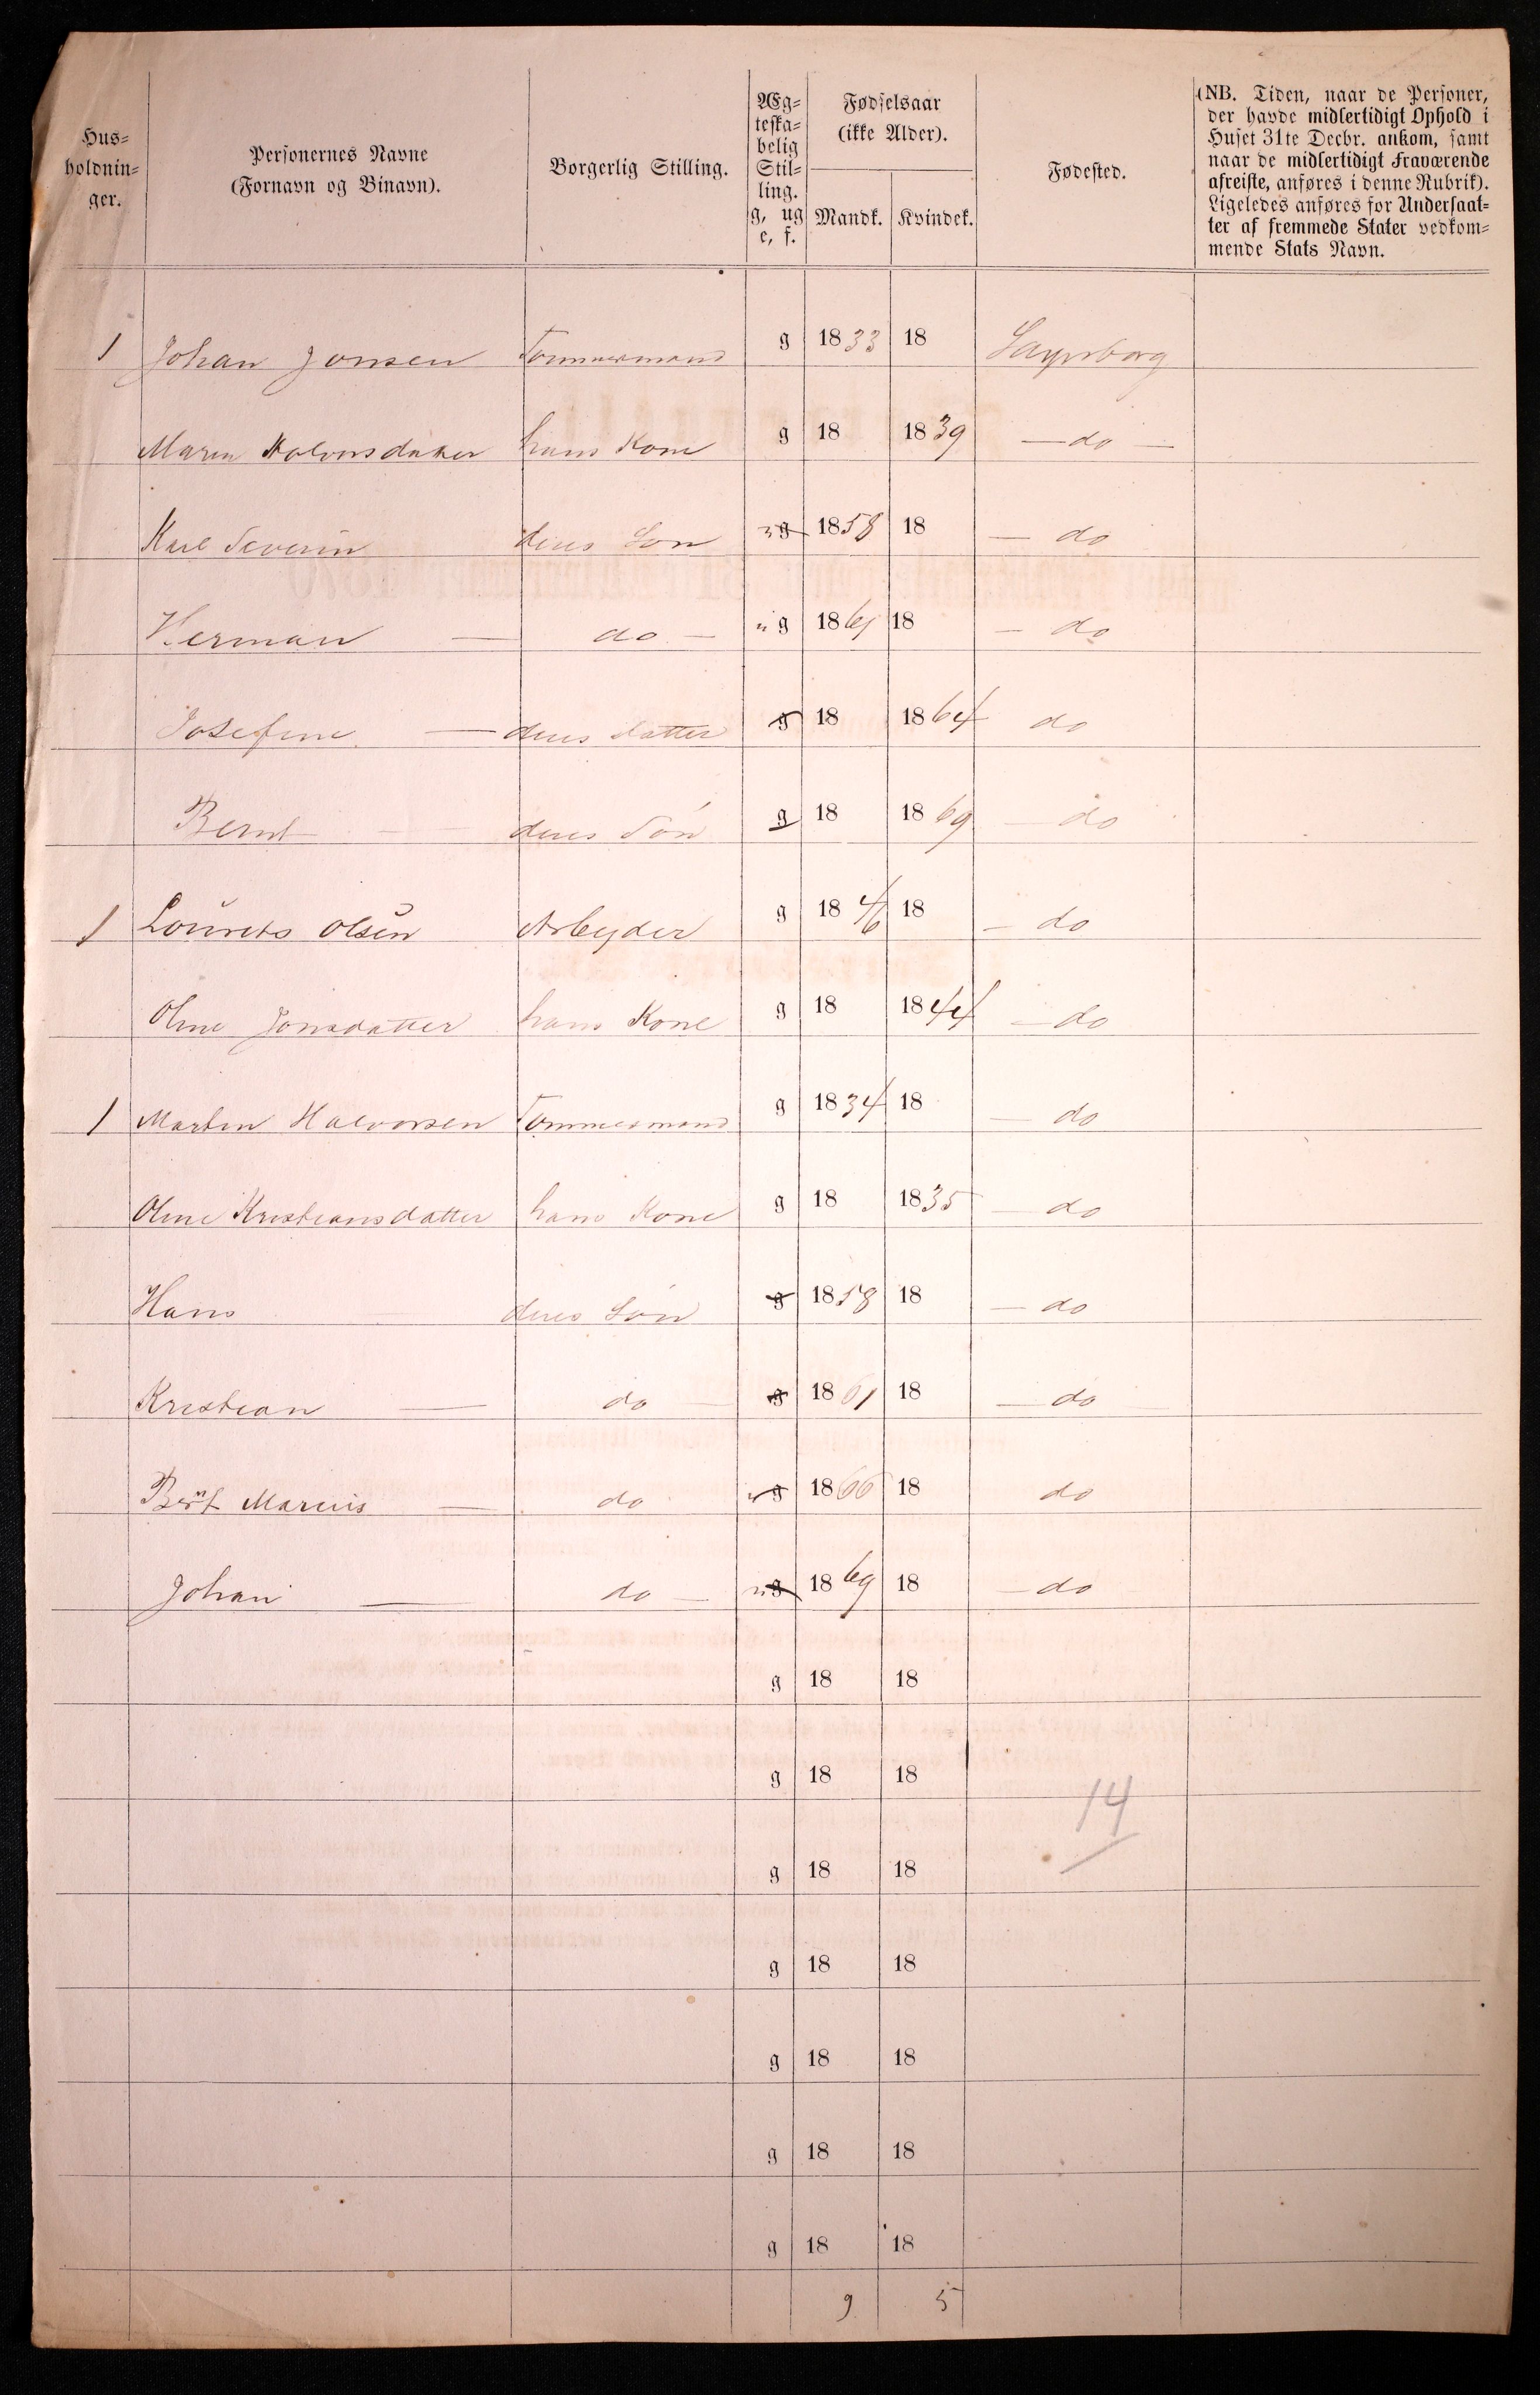 Hus=
holdnin=
ger.
Personernes Navne
(Fornavn og Binavn).
Borgerlig Stilling.
Æg=
teska=
belig
Stil=
ling.
g, ug
e, f.
Fødselsaar
(ikke Alder).
Mandk. Kvindek.
Fødested.
(NB. Tiden, naar de Personer,
der havde midlertidigt Ophold i
Huset 31te Decbr. ankom, samt
naar de midlertidigt Fraværende
afreiste, anføres i denne Rubrik).
Ligeledes anføres for Undersaat=
ter af fremmede Stater vedkom=
mende Stats Navn.
1 Johan Jonsen Tømmermand g 1833 18
Maren hans Kone g 18 1839 — do —
Karl Severin deres Søn ug 1858 18 — do
Herman — do — ug 1861 18 — do
Josefine — deres datter g 18 1864 do
Bernt — deres Søn g 18 1869 — do
1 Olsen Arbeyder g 1846 18 — do
Oline Jonsdatter hans Kone g 18 1844 — do
1 Martin Halvorsen Tømmermand g 1834 18 — do
Oline Kristiansdatter hans Kone g 18 1835 — do
Hans — deres Søn g 1858 18 — do
Kristian — do g 1861 18 — do
Marius — do ug 1866 18 do
Johan — do — ug 1869 18 — do
g 18 18
g 18 18
14
g 18 18
g 18 18
g 18 18
g 18 18
g 18 18
9 5